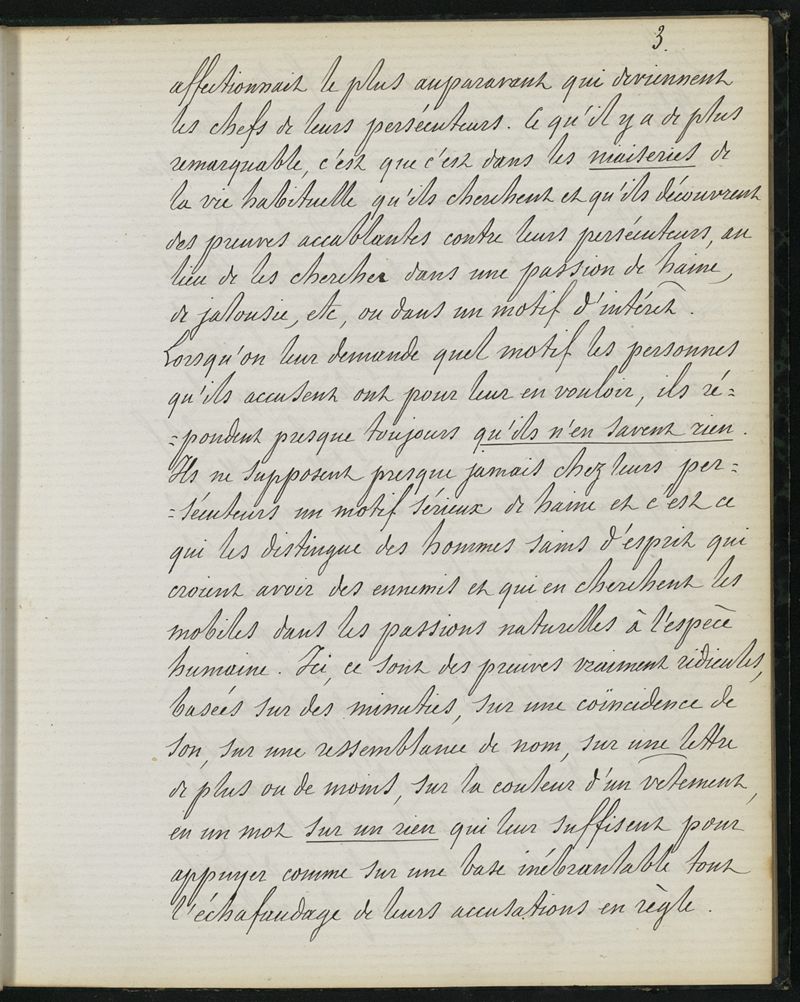 3.
affectionnait le plus auparavant qui deviennent
les chefs de leurs persécuteurs. Ce qu'il y a de plus
remarquable, c'est que c'est dans les niaiseries de
la vie habituelle qu'ils cherchent et qu'ils découvrent
des preuves accablantes contre leurs persécuteurs, au
lieu de les chercher dans une passion de haine,
de jalousie, etc, ou dans un motif d'intérêt.
Lorsqu'on leur demande quel motif les personnes
qu'ils accusent ont pour leur en vouloir, ils ré=
=pondent presque toujours qu'ils n'en savent rien.
Ils ne supposent presque jamais chez leurs per=
=sécuteurs un motif sérieux de haine et c'est ce
qui les distingue des hommes sains d'esprit qui
croient avoir des ennemis et qui en cherchent les
mobiles dans les passions naturelles à l'espèce
humaine. Ici, ce sont des preuves vraiment ridicules,
basées sur des minuties, sur une coïncidence de
son, sur une ressemblance de nom, sur une lettre
de plus ou de moins, sur la couleur d'un vêtement,
en un mot sur un rien qui leur suffisent pour
appuyer comme sur une base inébranlable tout
l'échafaudage de leurs accusations en règle.